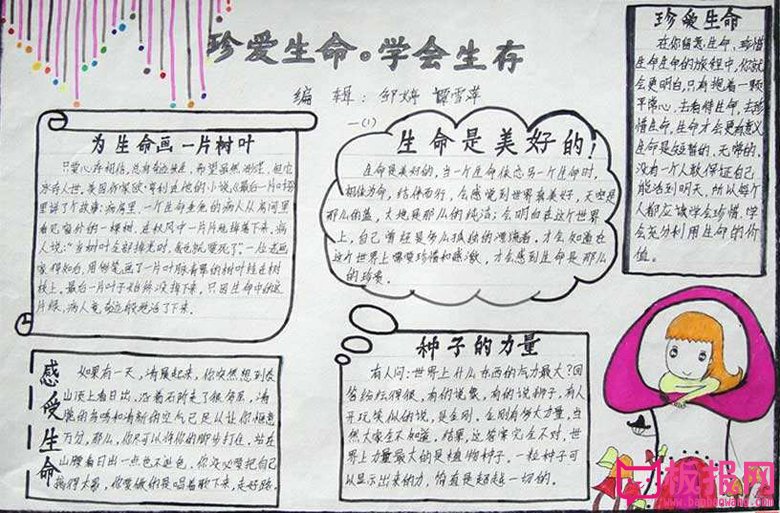 珍爱生命。学会生存
编 辑:
一(1)
为生命画一片树叶
只要心存相信,总有奇迹发生,希望虽然渺茫,但它
永存人世。美国作家欧·亨利在他的小说《最后一片叶子》
里讲了个故事:病房里,一个生命垂危的病人从房间里
看见窗外的一棵树,在秋风中一片片地掉落下来。病
人说:
最后一片叶子始终没掉下来。只因生命中的这
片绿,病人竟奇迹般地活了下来。
生命是美好的!
生命是美好的,当一个生命依恋另一个生命时,
相依为命,结伴而行,会感觉到世界真美好,天空是
那么的蓝,大地是那么的纯洁;会明白在这个世界
上,自己曾经是多么孤独的
这个世界上
的珍贵。
珍爱生命
在你留意生命,珍惜
生命生命的旅程中,你就
会更明白,只有抱着一颗
平常心,去看待生命,去珍
惜生命,生命才会更有意义
生命是短暂的、无常的,
没有一个人敢保证自己
能活到明天,所以每个
人都应该学会珍惜,学
会充分利用生命的价
值。
感受生命
如果有一天,清晨起来,你突然想到泰
山顶上看日出,沿着石阶走了很久后,清
脆的鸟鸣和清新的空气已足以让你惬意
万分,那么,你尽可以将你的脚步打住,站在
山腰看日出一点也不逊色,你没必要把自己
搞得太累,你要做的是唱着歌下来,走好路。
种子的力量
有人问:世界上什么东西的气力最大?回
答纷纭得很,有的说象,有的说狮子,有人
开玩笑似的说,是金刚,金刚有多大力量,当
然大家全不知道。结果,这答案完全不对,世
界上力量最大的是植物种子。一粒种子可
以显示出来的力,简直是超越一切的。
板报网
www.banbaowang.com